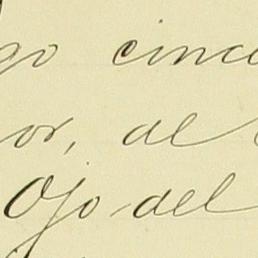 go cinco
or, al
Ojo-del